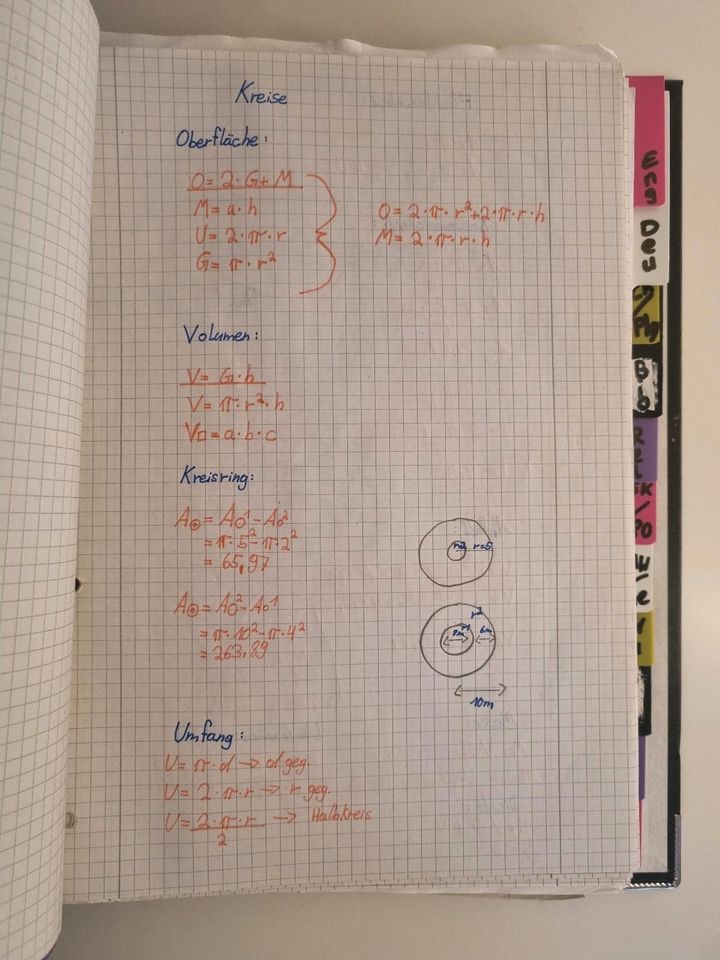 Kreise
Oberfläche:
O = 2 · G + M
M = u · h
U = 2 · π · r
G = π · r²
O = 2 · π · r² + 2 · π · r · h
M = 2 · π · r · h
Volumen:
V = G · h
V = π · r² · h
V□ = a · b · c
Kreisring:
A◎ = A○1 - A○2
= π · 5² - π · 2²
= 65,97
r=5
A◎ = A○2 - A○1
= π · 10² - π · 4²
= 263,89
r2
r1
8m
6m
10m
Umfang:
U = π · d → d geg.
U = 2 · π · r → r geg.
U = 2 · π · r → Halbkreis
2
Eng
Deu
Bio